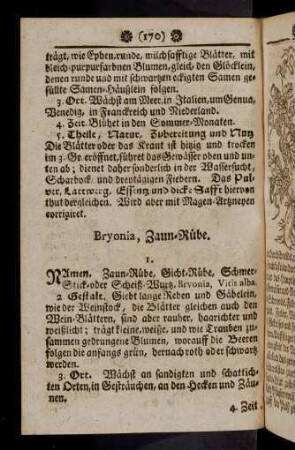 (170)
trägt, wie Ephen, runde, milchsafftige Blätter, mit
bleich-purpurfarbnen Blumen, gleich den Glöcklein,
denen runde und mit schwartzen eckigten Samen ge-
füllte Samen-Häußlein folgen.
3. Ort. Wächst am Meer, in Italien, um Genua,
Venedig, in Franckreich und Niederland.
4. Zeit. Blühet in den Sommer-Monaten.
5. Theile, Natur, Zubereitung und Nutz
Die Blätter oder das Kraut ist hitzig und trocken
im 3. Gr. eröffnet, führet das Gewässer oben und un-
ten ab; dienet daher sonderlich in der Wassersucht,
Scharbock und dreytägigen Fiebern. Das Pul-
ver, Lattwerg, Essentz und dicke Safft hiervon
thut dergleichen. Wird aber mit Magen-Artzneyen
corrigiret.
Bryonia, Zaun-Rübe.
1.
NAmen. Zaun-Rübe, Gicht-Rübe, Schmer-
Stick- oder Scheiß-Wurtz, Bryonia, Vitis alba.
2. Gestalt. Giebt lange Reben und Gäbelein,
wie der Weinstock, die Blätter gleichen auch den
Wein-Blättern, sind aber rauher, haarichter und
weißlicht; trägt kleine, weiße, und wie Trauben zu-
sammen gedrungene Blumen, worauff die Beeren
folgen die anfangs grün, hernach roth oder schwartz
werden.
3. Ort. Wächst an sandigten und schattich-
ten Orten, in Gesträuchen, an den Hecken und Zäu-
nen.
4. Zeit